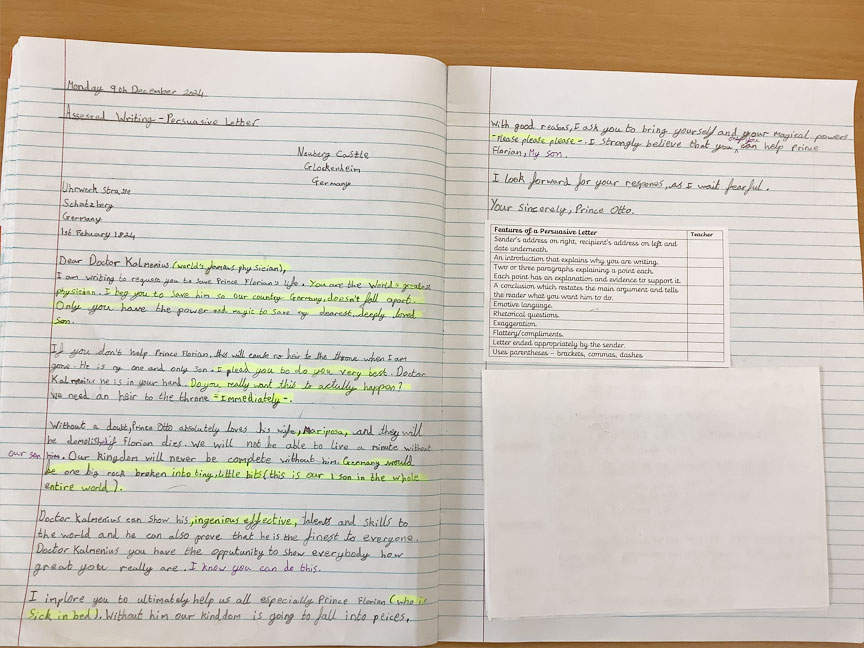 Monday 9th December 2024
Assessed Writing - Persuasive Letter
Neuberg Castle
Glockenheim
Germany
Uhrwerk Strasse
Schatzberg
Germany
1st February 1824
Dear Doctor Kalmenius (world's famous physician),
I am writing to request you to save Prince Florian's life. You are the World's greatest
physician. I beg you to save him so our country Germany, doesn't fall apart.
Only you have the power and magic to save my dearest, deeply loved
son.
If you don't help Prince Florian, this will cause no hair to the throne when I am
gone. He is my one and only son. I plead you to do you very best. Doctor
Kalmenius he is in your hand. Do you really want this to actally happen?
We need an hair to the throne -Immediately-.
Without a doubt, Prince Otto absolutely loves his wife, Mariposa, and they will
be demolishd if Florian dies. We will not be able to live a minute without
our son him. Our Kingdom will never be complete without him. Germany would
be one big rock broken into tiny, little bits (this is our 1 son in the whole
entire world).
Doctor Kalmenius can show his, ingenious effective, talents and skills to
the world and he can also prove that he is the finest to everyone.
Doctor Kalmenius you have the opputunity to show everybody how
great you really are. I know you can do this.
I implore you to ultimately help us all especially Prince Florian (who is
Sick in bed). Without him our kinddom is going to fall into peices,
With good reasons, I ask you to bring yourself and your magical powers
-Please please please-. I strongly believe that you can help Prince
Florian, My son.
I look forward for your respones, as I wait fearful.
Your sincerely, Prince Otto.
Features of a Persuasive Letter Teacher
Sender's address on right, recipient's address on left and
date underneath.
An introduction that explains why you are writing.
Two or three paragraphs explaining a point each.
Each point has an explanation and evidence to support it.
A conclusion which restates the main argument and tells
the reader what you want him to do.
Emotive language.
Rhetorical questions.
Exaggeration.
Flattery/compliments.
Letter ended appropriately by the sender.
Uses parentheses - brackets, commas, dashes